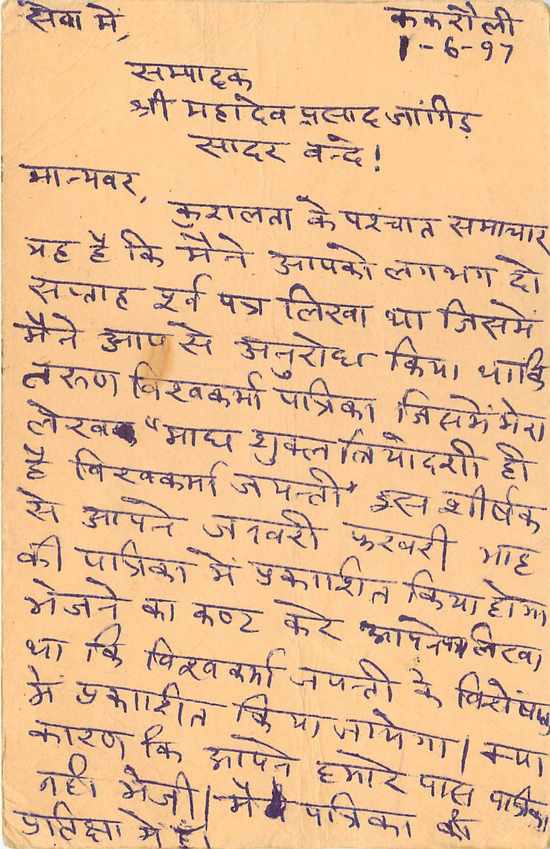 सेवा में,
ककरौली
1-6-97
सम्पादक
श्री महादेव प्रसाद जांगिड़
सादर वन्दे!
मान्यवर,
कुशलता के पश्चात समाचार
यह है कि मैंने आपको लगभग दो
सप्ताह पूर्व पत्र लिखा था जिसमें
मैंने आप से अनुरोध किया था कि
तरुण विश्वकर्मा पत्रिका जिसमें मेरा
लेख "माघ शुक्ल त्रियोदशी ही
है विश्वकर्मा जयन्ती" इस शीर्षक
से आपने जनवरी फरवरी माह
की पत्रिका में प्रकाशित किया होगा
भेजने का कष्ट करें आपने लिखा
था कि विश्वकर्मा जयन्ती के विशेषांक
में प्रकाशित किया जायेगा। क्या
कारण कि आपने हमारे पास पत्रिका
नहीं भेजी। मैं पत्रिका की
प्रतिक्षा में हूँ।